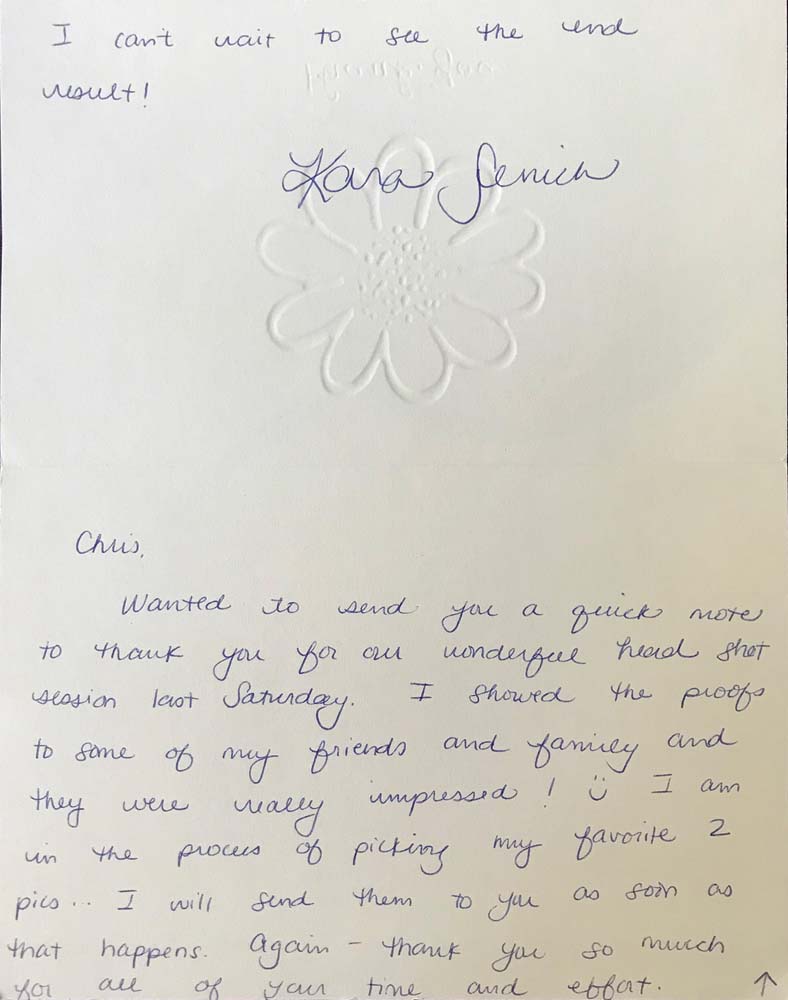 I can't wait to see the end
result!
Kara
Chris,
Wanted to send you a quick note
to thank you for our wonderful head shot
session last Saturday. I showed the proofs
to some of my friends and family and
they were really impressed! I am
in the process of picking my favorite 2
pics.. I will send them to you as soon as
that happens. Again - thank you so much
for all of your time and effort. ↑